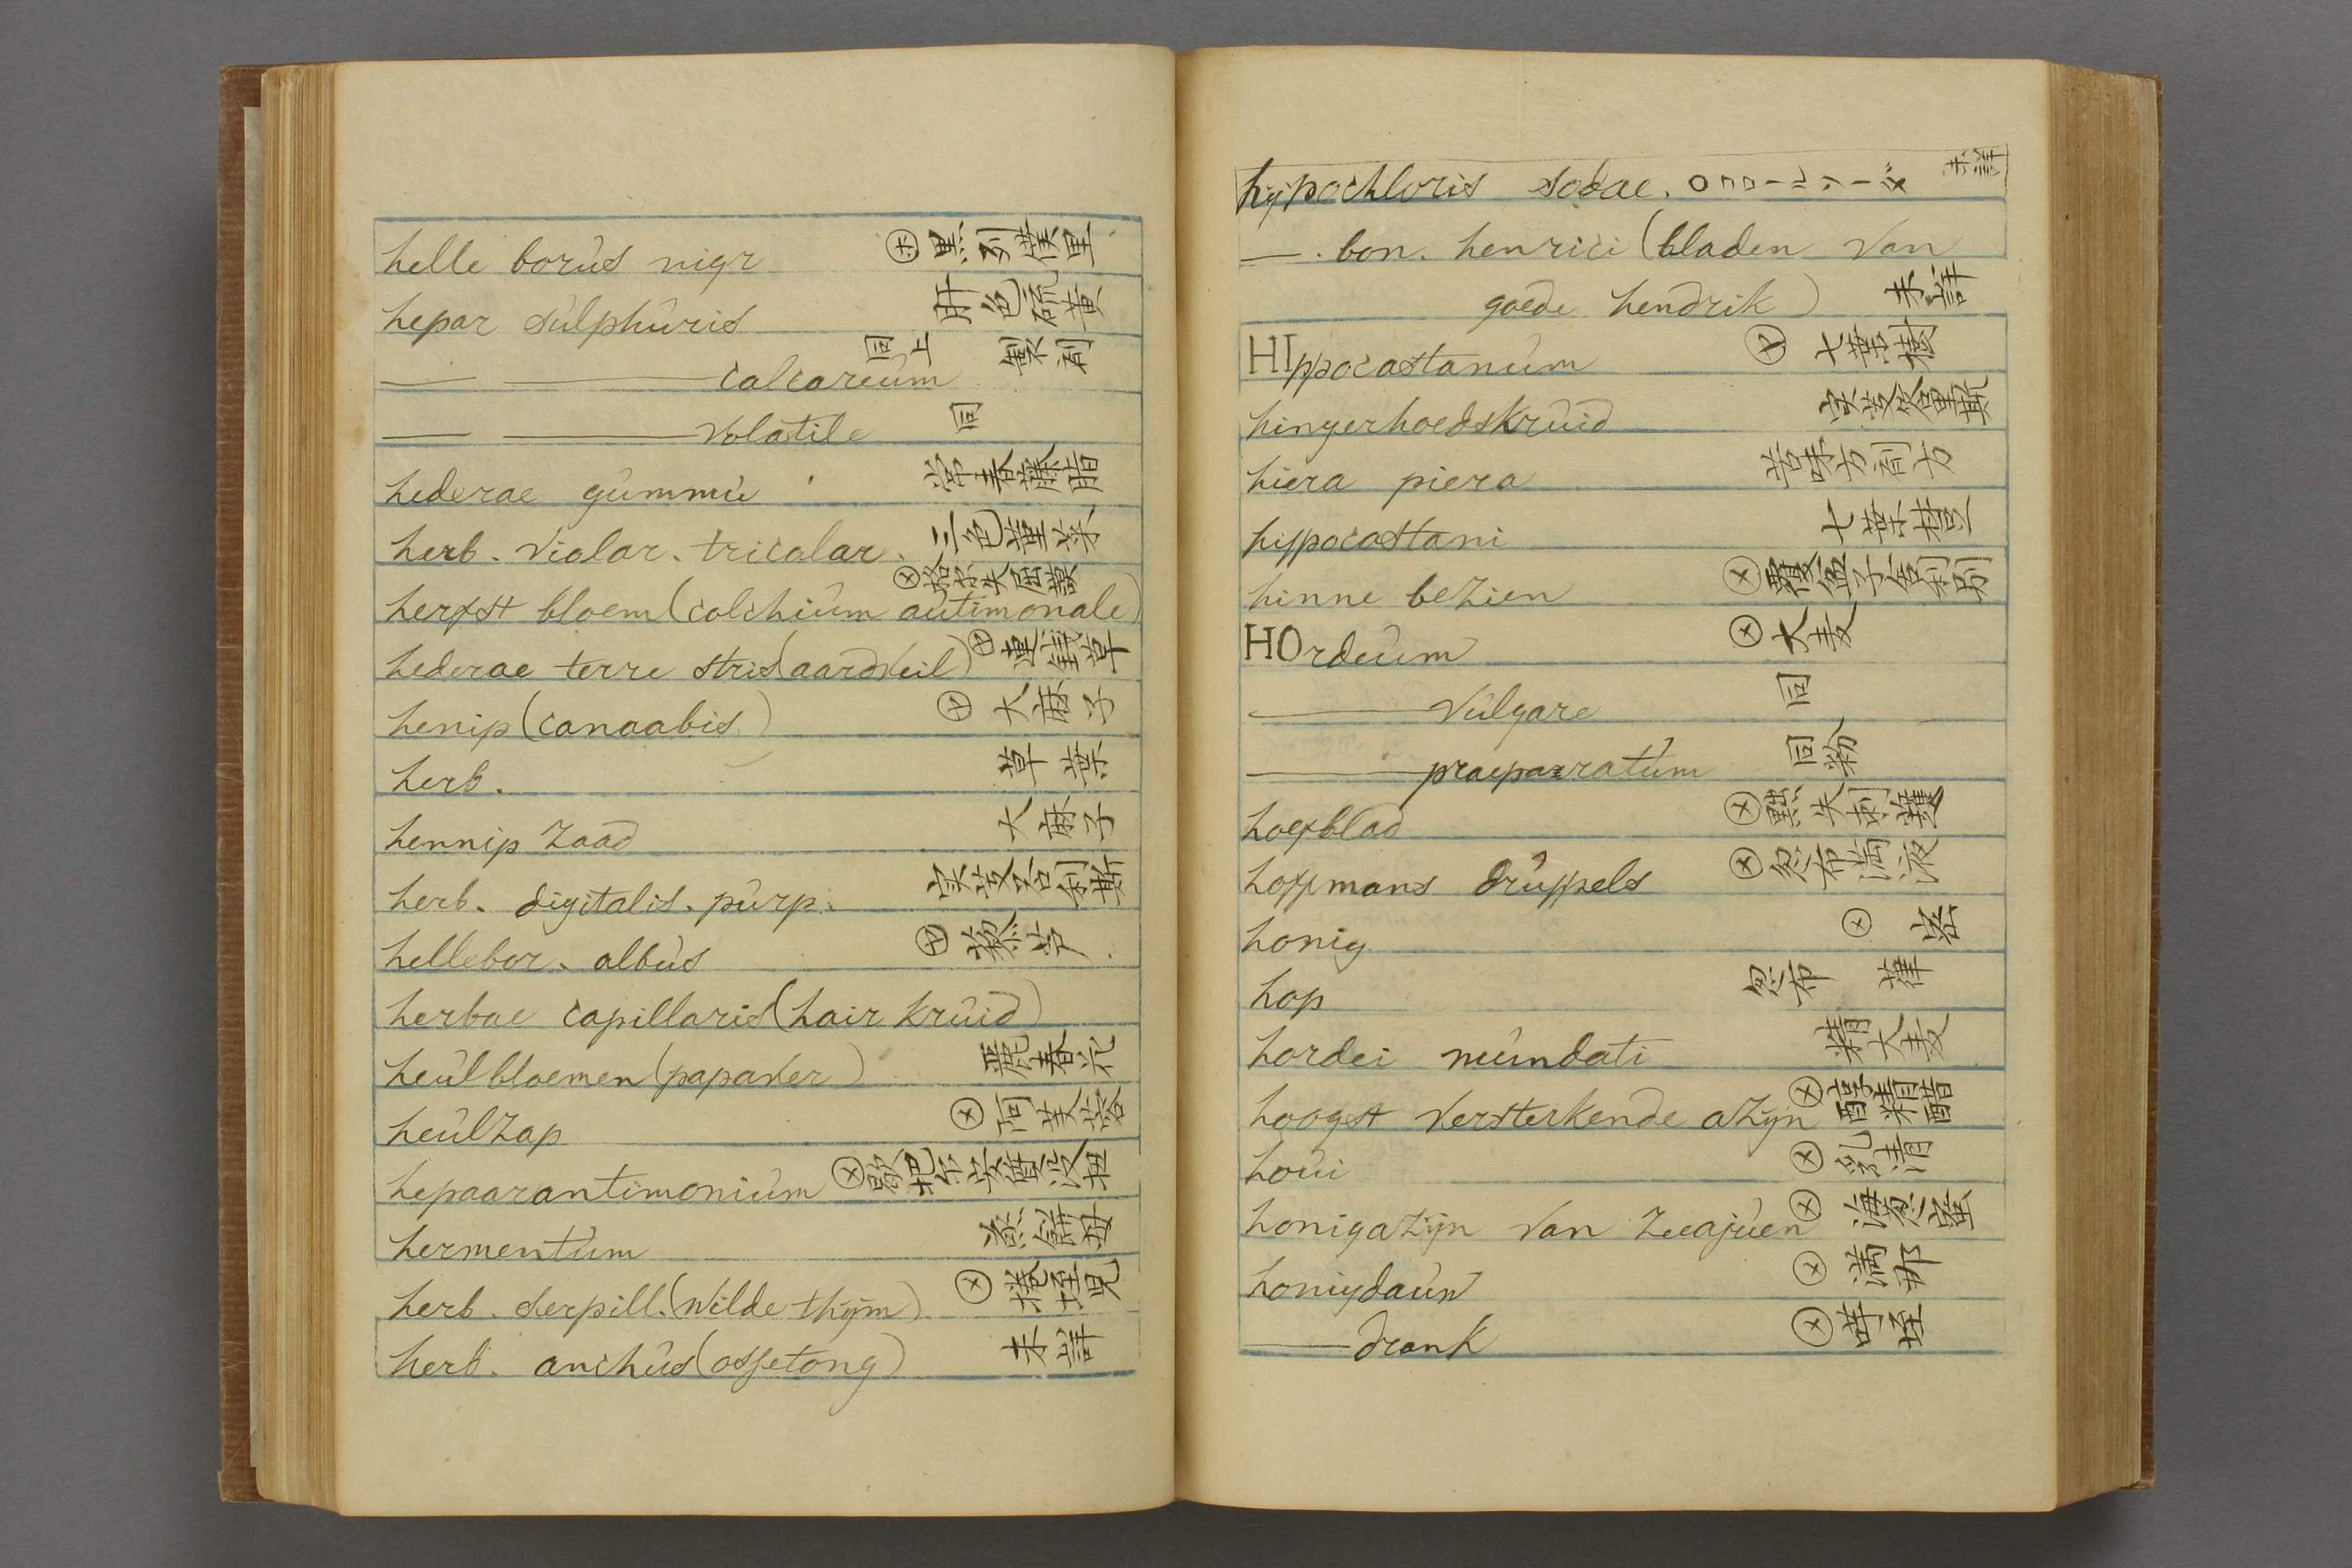 helle borus nigr ㋭ 黒列僕里
hepar sulphuris 肝色硫黄
—— —— calcareum 同上 製剤
—— —— volatile 同
hederae gummi 常春藤脂
herb. violar. tricolar. 三色菫菜
herfst bloem (colchium autimonale)
hederae terre stris (aardveil) ㋥ 連銭草
henip (canaabis) ㋥ 大麻子
herb. 草葉
hennip zaad 大麻子
herb. digitalis. purp. 実芰答利斯
hellebor. albus ㋥ 藜芦
herbae capillaris (hair kruid)
heul bloemen (papaver) 麗春花
heulzap ㋨ 阿芙蓉
hepaarantimonium ㋨
hermentum 蒸餅母
herb. serpill. (wilde thijm) ㋨
herb. anchus (ossetong) 未詳
hypochloris sodae. コロールソーダ 未詳
—. bon. henrici (bladen van
goede hendrik) 未詳
HIppocastanum ㋥ 七葉樹
hingerhoedskruid 実芰答里斯
hiera piera 苦味方剤方
hippocastani 七葉樹
hinne bezien ㋨ 覆盆子舎利別
HOrdeum ㋨ 大麦
—— vulgare 同
—— praeparratum 同粉
hoefblad ㋨
hoffmans druppels ㋨ 忽布満液
honig ㋨ 蜜
hop 忽布 葎
hordei mundati 精大麦
hoogst versterkende azijn ㋨ 醇精醋
houi ㋨ 乳清
honigazijn van zeeajuen ㋨ 海葱蜜
honigdauw ㋨ 満那
—— drank ㋨